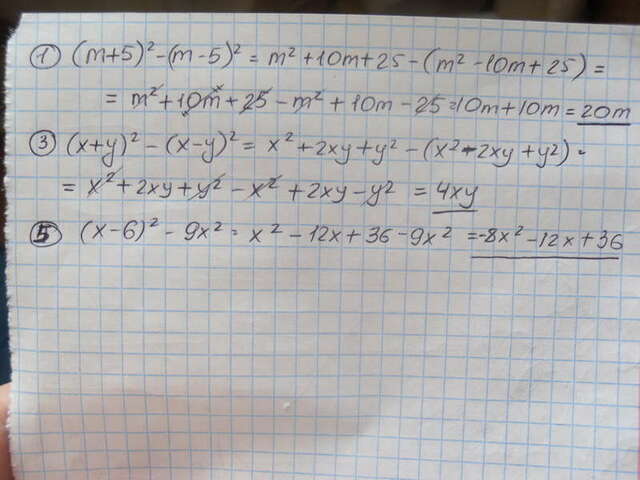 ① (m+5)² - (m-5)² = m² + 10m + 25 - (m² - 10m + 25) =
= m² + 10m + 25 - m² + 10m - 25 = 10m + 10m = 20m
③ (x+y)² - (x-y)² = x² + 2xy + y² - (x² - 2xy + y²) =
= x² + 2xy + y² - x² + 2xy - y² = 4xy
⑤ (x-6)² - 9x² = x² - 12x + 36 - 9x² = -8x² - 12x + 36